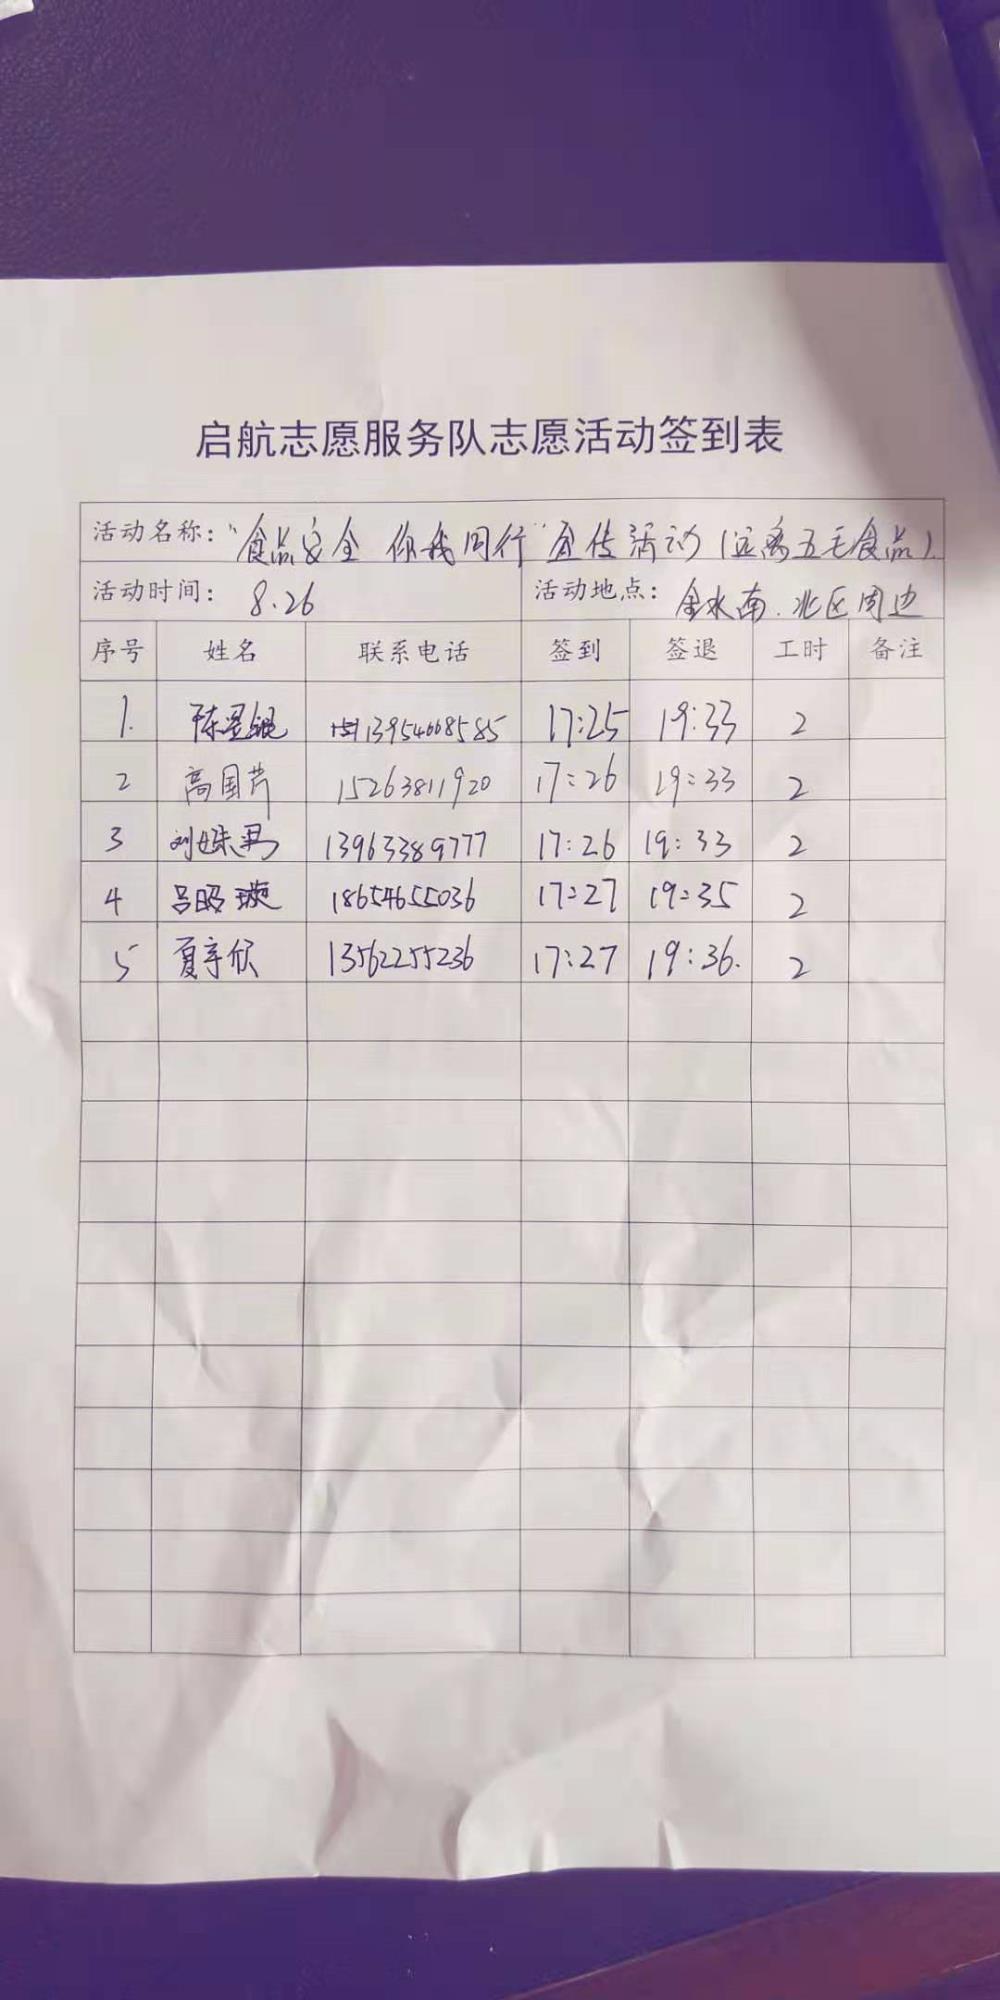 启航志愿服务队志愿活动签到表
活动名称：“食品安全 你我同行”宣传活动（远离五毛食品）.
活动时间： 8.26 活动地点： 金水南.北区周边
序号 姓名 联系电话 签到 签退 工时 备注
1. 13954608585 17:25 19:33 2
2 高国芹 15263811920 17:26 19:33 2
3 刘姝君 13963389777 17:26 19:33 2
4 吕昭璇 18654655036 17:27 19:35 2
5 夏辛欣 13562255236 17:27 19:36. 2